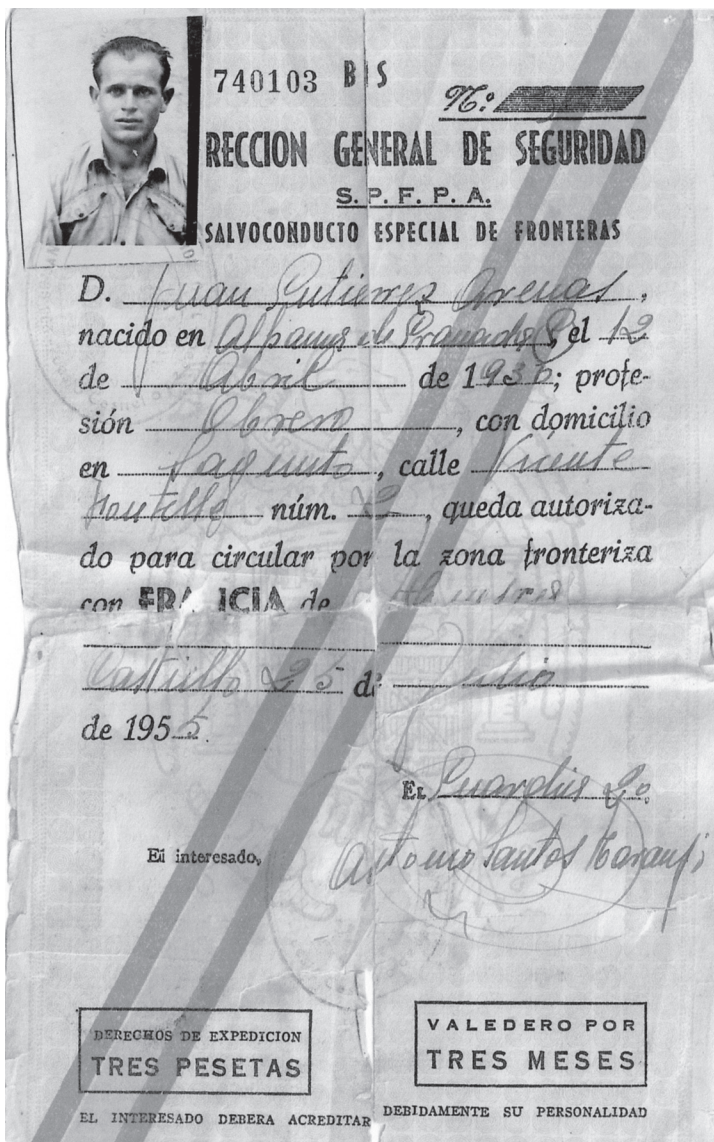 740103 BIS
Nº:
RECCION GENERAL DE SEGURIDAD
S. P. F. P. A.
SALVOCONDUCTO ESPECIAL DE FRONTERAS
D. Juan Gutierrez Arenas,
nacido en de Granada, el 12
de Abril de 1936; profe-
sión Obrero, con domicilio
en Sagunto, calle Vicente
núm. , queda autoriza-
do para circular por la zona fronteriza
con FRANCIA de
Castillo 25 de Julio
de 1955.
EL Guardia 2º
El interesado,
Antonio Santos
DERECHOS DE EXPEDICION
TRES PESETAS
VALEDERO POR
TRES MESES
EL INTERESADO DEBERA ACREDITAR DEBIDAMENTE SU PERSONALIDAD